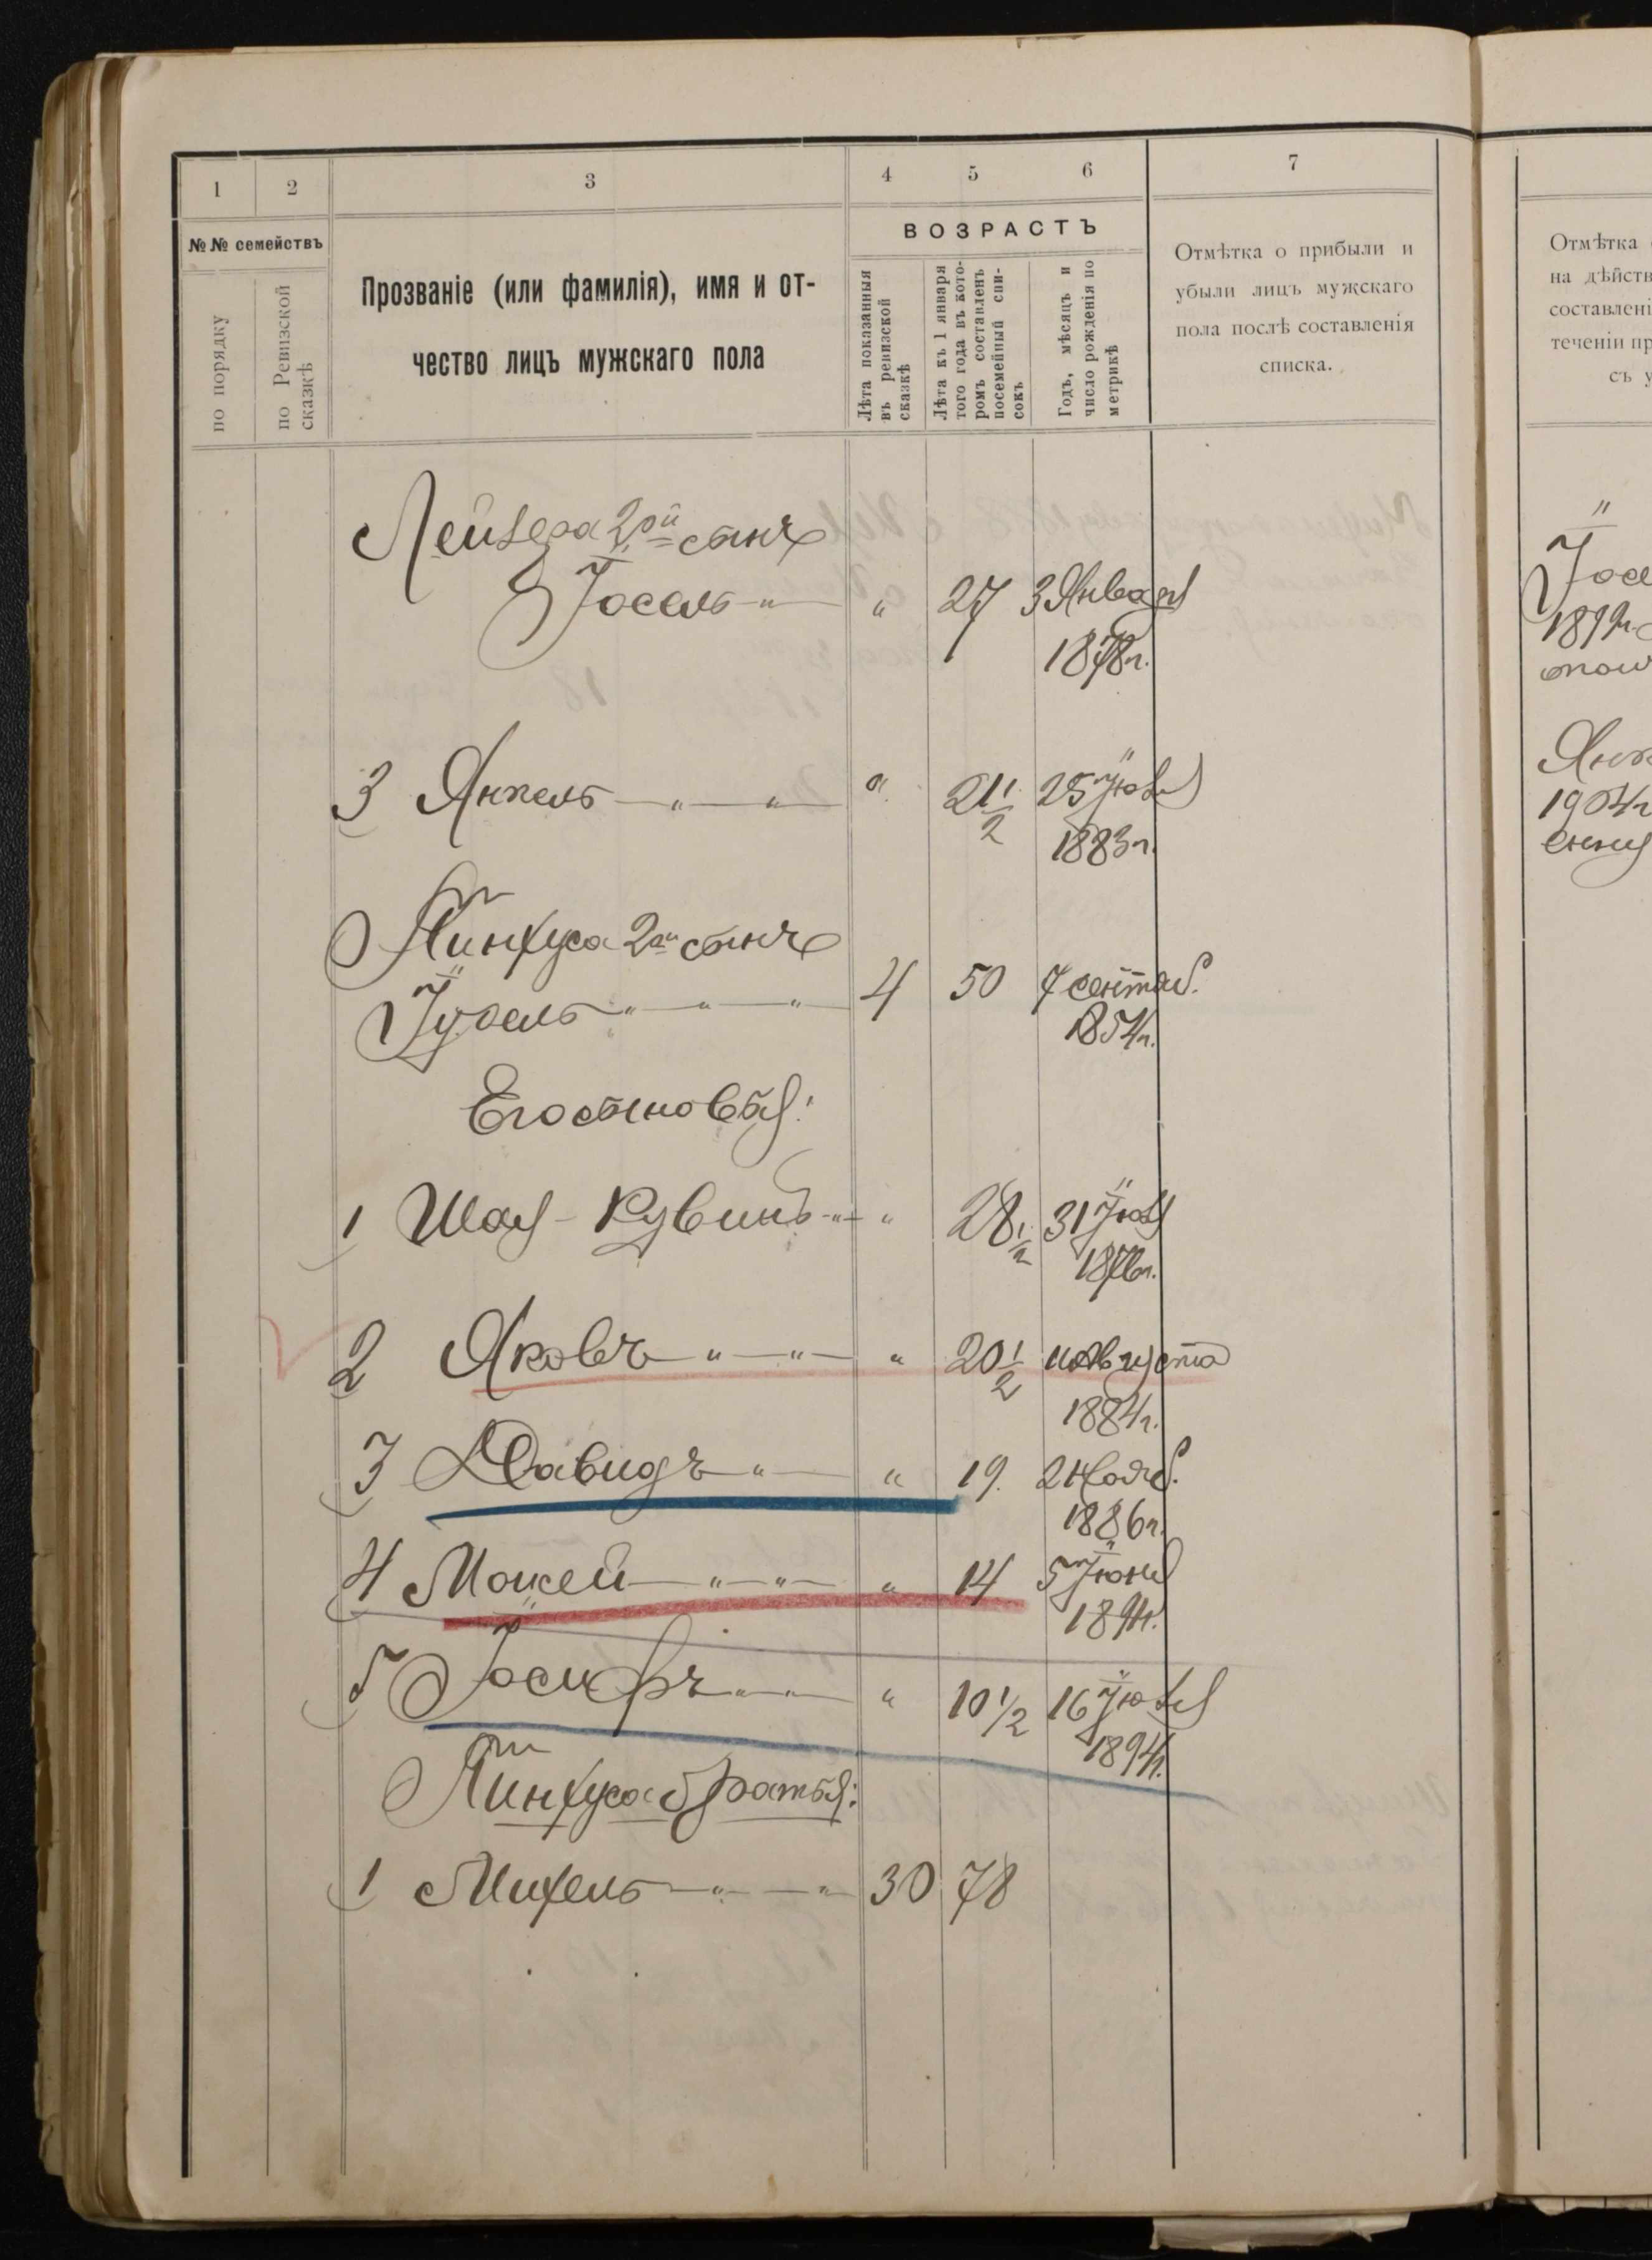 1 2 3 4 5 6 7
№№ семействъ
по порядку
по Ревизской
сказкѣ
Прозваніе (или фамилія), имя и от-
чество лицъ мужскаго пола
ВОЗРАСТЪ
Лѣта показанныя
въ ревизской
сказкѣ
Лѣта къ 1 января
того года въ кото-
ромъ составленъ
посемейный спи-
сокъ
Годъ, мѣсяцъ и
число рожденія по
метрикѣ
Отмѣтка о прибыли и
убыли лицъ мужскаго
пола послѣ составленія
списка.
Отмѣтка
на дѣйств
составлені
теченіи пр
съ у
Лейзера 2ой сынъ
Іосель " " 27 3 Января
1878 г.
3 Янкель " " " 21 1/2 25 Іюля
1883 г.
Пинхуса 2й сынъ
Іудель " " " 4 50 7 сентяб.
1854 г.
Его сыновья:
1 Шая-Рувинъ " " 28 1/2 31 Іюля
1876 г.
2 Яковъ " " " 20 1/2 Августа
1884 г.
3 Давидъ " " 19. 2 Нояб.
1886 г.
4 Мошей " " " 14 5 Іюня
189 г.
5 Іосифъ " " " 10 1/2 16 Іюля
1894 г.
Пинхуса братья:
1 Михель " " 30 78
"
Іосе
189 г.
Янк
1904 г